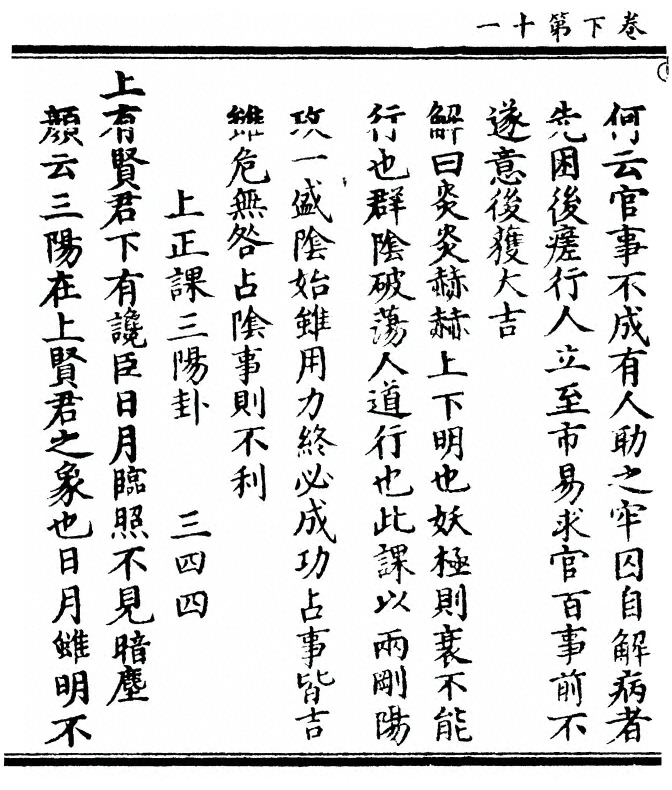 卷下第十一
何云官事不成有人助之牢囚自解病者
先困後瘥行人立至市易求官百事前不
遂意後獲大吉
解曰炎炎赫赫上下明也妖極則衰不能
行也群陰破蕩人道行也此課以兩剛陽
攻一盛陰始雖用力終必成功占事皆吉
雖危無咎占陰事則不利
上正課三陽卦　三四四
上有賢君下有讒臣日月臨照不見暗塵
顏云三陽在上賢君之象也日月雖明不